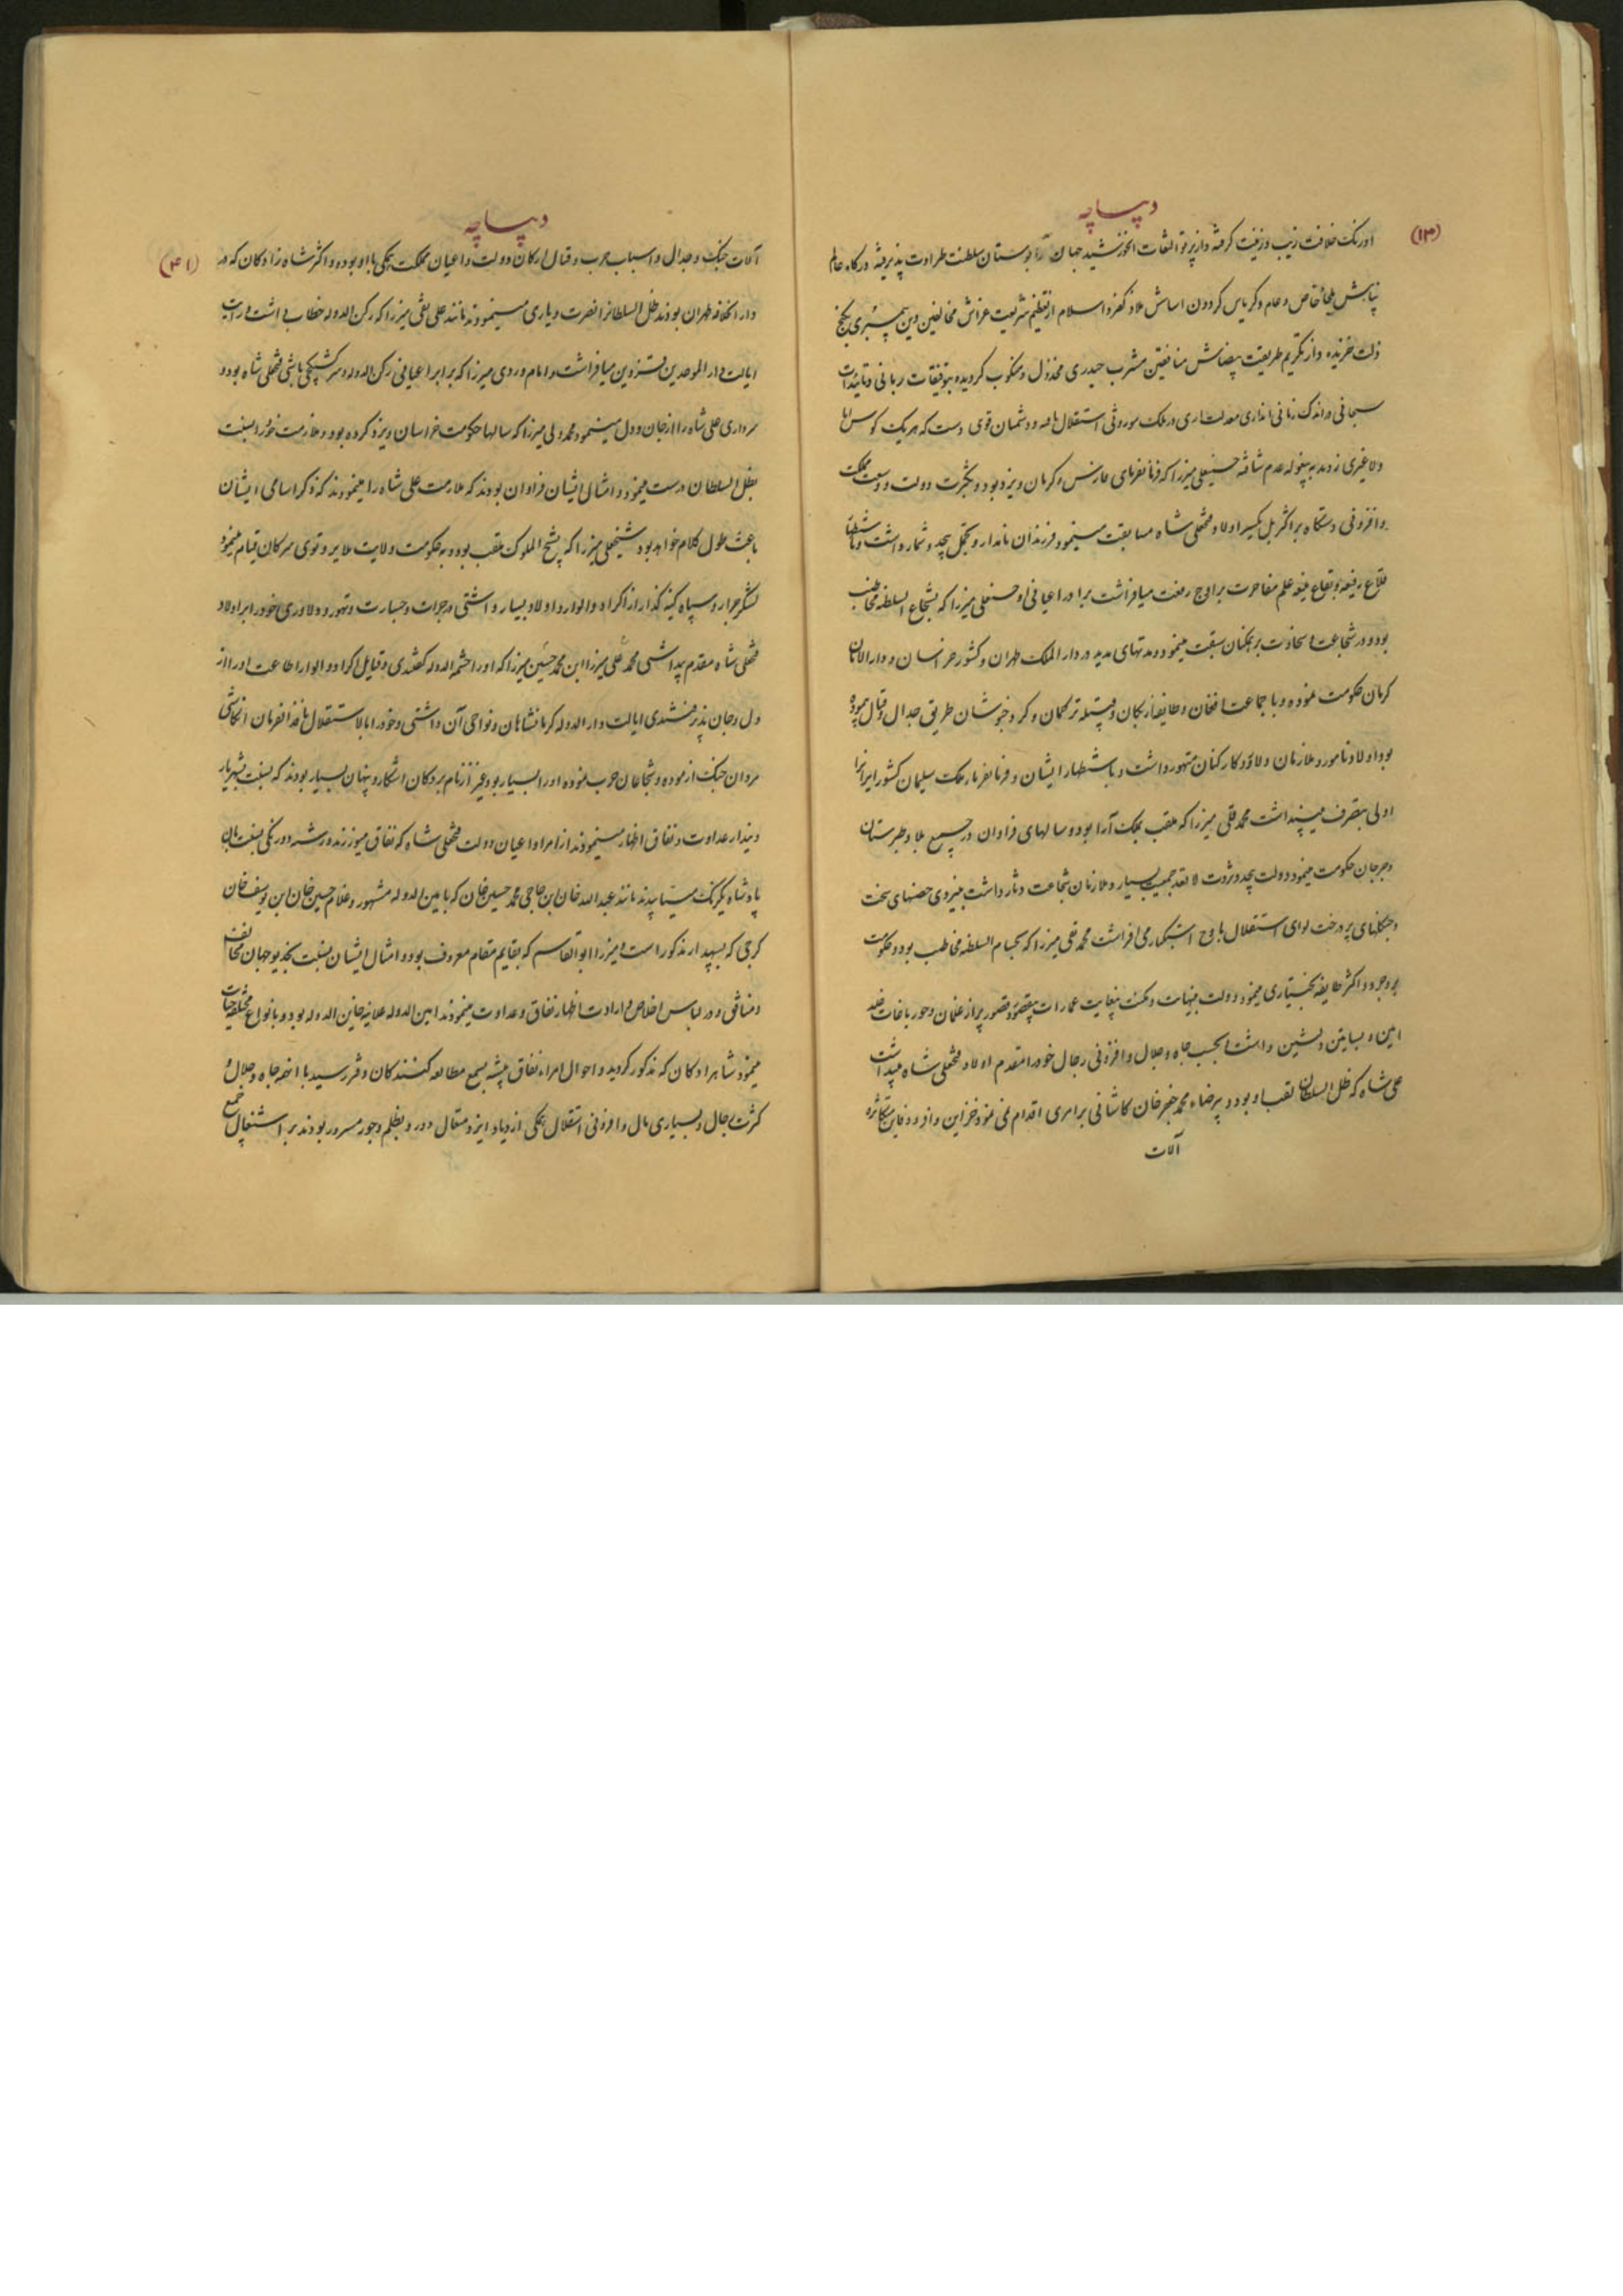 دیباچه
(۱۳)
اورنک خلافت زیب و زینت کرفته و از پرتو التفات انخورشید جهان آرا بوستان سلطنت طراوت پذیرفته درکاه عالم
پناهش ملجأ خاص و عام وکریاس کردون اساس ملاذ کفر و اسلام از تعظیم شریعت غراش مخالفین دین پیمبری بکنج
ذلت خزیده و از تکریم طریقت بیضاش منافقین مشرب حیدری مخذول و منکوب کردیده بتوفیقات ربانی و تائیدات
سبحانی در اندک زمانی باندازی معدلت‌ساری در ملک موروثی استقلال یافته و دشمنان قوی دست که هر یک کوس انا
ولا غیری زدند به بیغوله عدم شتافته حسینعلی میرزا که فرمانفرمای فارس و کرمان و یزد بود و بکثرت دولت و وسعت مملکت
و افزونی دستکاه بر اکثر بل یکسر اولاد فتحعلی شاه مسابقت مینمود فرزندان نامدار و تجمل بیحد و شمار داشت و باستظهار
قلاع رفیعه و بقاع منیعه علم مفاخرت بر اوج رفعت میافراشت برادر اعیانی او حسنعلی میرزا که بشجاع السلطنه مخاطب
بود و در شجاعت و سخاوت بر همکنان سبقت مینمود و مدتهای مدید در دار الملک طهران و کشور خراسان و دار الامان
کرمان حکومت نموده و با جماعت افغان و طایفه ازبکان و قبیله ترکمان و کرد خبوشان طریق جدال و قتال پیموده
بود اولاد نامور و ملازمان دلاور و کارکنان متهور داشت و باستظهار ایشان و فرمانفرما ملک سلیمان کشور ایرانرا
اولی بتصرف میپنداشت محمد قلی میرزا که ملقب بملک آرا بود و سالهای فراوان در جمیع بلاد طبرستان
و جرجان حکومت مینمود و دولت بیحد و ثروت لا تعد جمعیت بسیار و ملازمان شجاعت دثار داشت بنیروی حصنهای سخت
و جنکلهای پر درخت لوای استقلال باوج استکبار می افراشت محمد تقی میرزا که بحسام السلطنه مخاطب بود و حکومت
بروجرد و اکثر طایفه بختیاری مینمود و دولت بینهایت و مکنت بیغایت عمارات بیقصور و قصور پر از غلمان و حور باغات خلد
آیین و بساتین دلنشین داشت و بحسب جاه و جلال و افزونی رجال خود را مقدم اولاد فتحعلی شاه میپنداشت
علی شاه که ظل السلطان لقب او بود و بیرضاء محمد جعفر خان کاشانی بر امری اقدام نمی نمود خزاین وافر و دفاین متکاثره
آلات
دیباچه
(۱۴)
آلات جنک و جدال و اسباب حرب و قتال ارکان دولت و اعیان مملکت همکی با او بوده و اکثر شاه زادکان که در
دار الخلافه طهران بودند ظل السلطانرا نصرت و یاری مینمودند مانند علی نقی میرزا که رکن الدوله خطاب داشت و رایت
ایالت دار الموحدین قزوین میافراشت و امام وردی میرزا که برادر اعیانی رکن الدوله و سرکشیکچی باشی فتحعلی شاه بود و
سرداری علی شاه را از جان و دل مینمود محمد ولی میرزا که سالها حکومت خراسان و یزد کرده بود و ملازمت خود را نسبت
بظل السلطان درست مینمود و امثال ایشان فراوان بودند که ملازمت علی شاه را مینمودند که ذکر اسامی ایشان
باعث طول کلام خواهد بود شیخعلی میرزا که بشیخ الملوک ملقب بود و بحکومت ولایت ملایر و توی سرکان قیام مینمود
لشکر جرار و سپاه کینه کذار از اکراد و الوار و اولاد بسیار داشتی و جرات و جسارت و تهور و دلاوری خود را بر اولاد
فتحعلی شاه مقدم پنداشتی محمد علی میرزا ابن محمد حسین میرزا که او را حشمه الدوله کفتندی و قبایل اکراد و الوار اطاعت او را از
دل و جان پذیرفتندی ایالت دار الدوله کرمانشاهان و نواحی آن داشتی و خود را بالاستقلال نافذ الفرمان انکاشتی
مردان جنک ازموده و شجاعان حرب نموده او را بسیار بود و غیر از نام بردکان اشکار و پنهان بسیار بودند که بنسبت شهریار
دیندار عداوت و نفاق اظهار مینمودند از امرا و اعیان دولت فتحعلی شاه که نفاق میورزیدند و رشته دورنکی بنسبت بان
پادشاه یکرنک میتابیدند مانند عبد الله خان ابن حاجی محمد حسین خان که بامین الدوله مشهور و غلام حسین خان ابن یوسف خان
کرجی که بسپهدار مذکور است و میرزا ابو القاسم که بقایم مقام معروف بود و امثال ایشان بنسبت بخدیو جهان مخالف
و منافق و در لباس اخلاص و ارادت اظهار نفاق و عداوت مینمودند امین الدوله علانیه خاین الدوله بود و بانواع مختلفه خیانت
مینمود شاهزادکان که مذکور کردید و احوال امراء نفاق پیشه بسمع مطالعه کنندکان وقر رسید با انهمه جاه و جلال و
کثرت رجال و بسیاری مال و افزونی استقلال همکی از دیاد ایزد متعال دور و بظلم و جور مسرور بودند بر اشتغال جمع